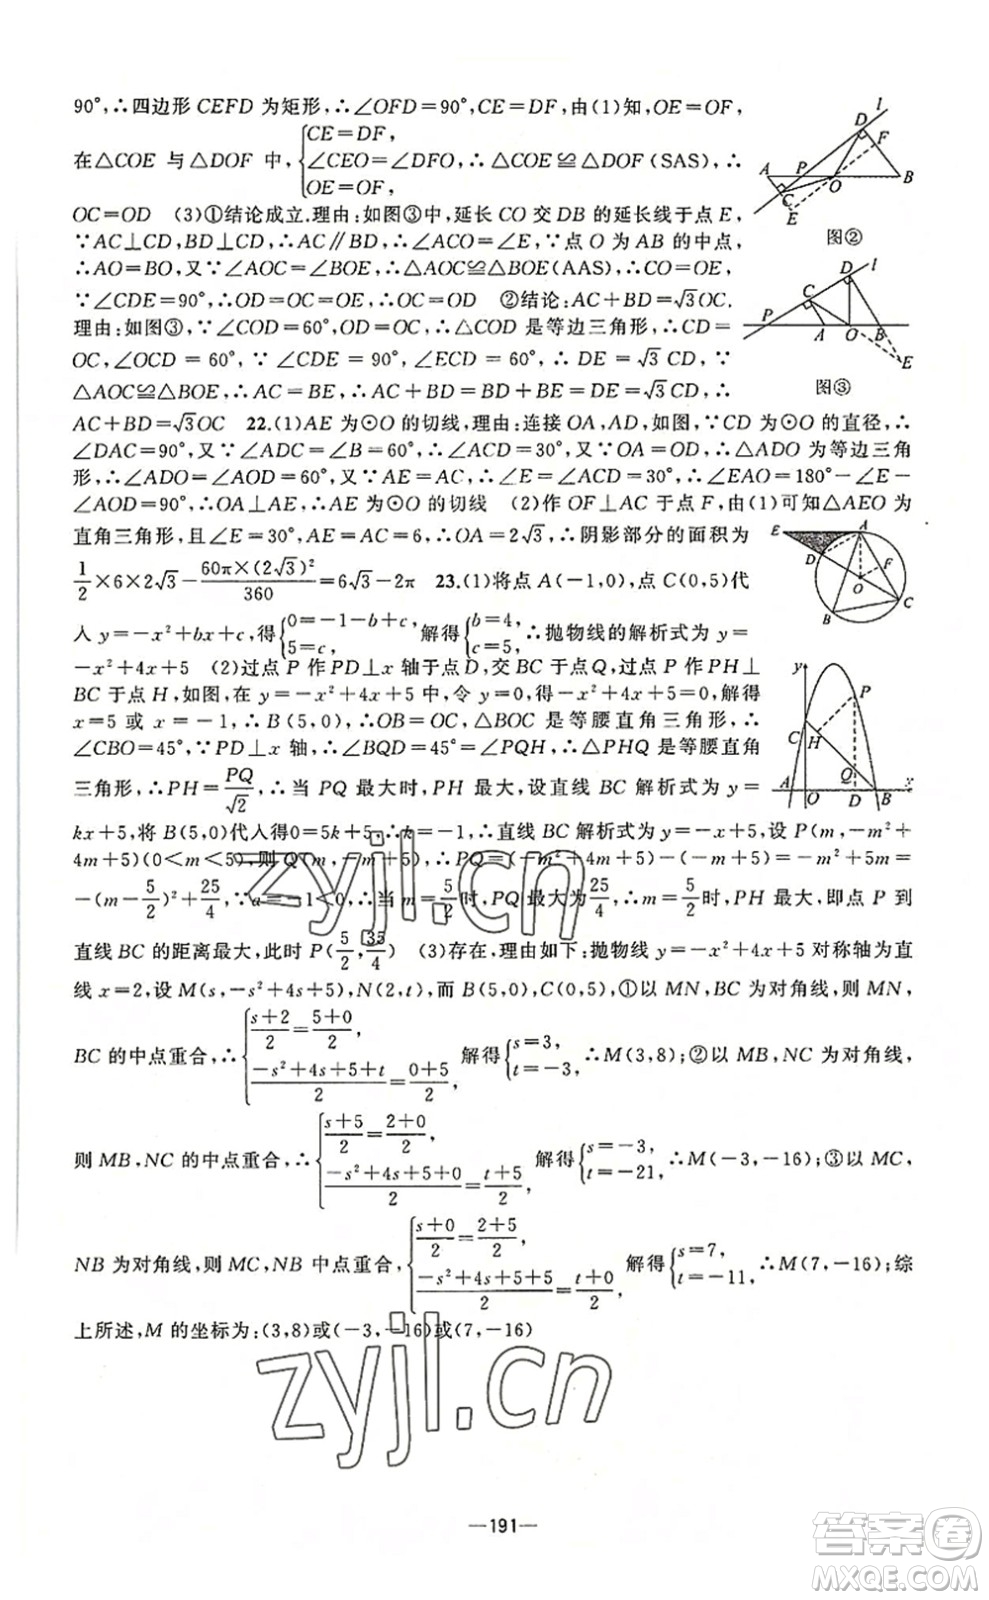 90°,∴四边形 CEFD 为矩形,∴∠OFD=90°,CE=DF,由(1)知,OE=OF,
在△COE 与△DOF 中,{CE=DF, ∠CEO=∠DFO, OE=OF, ∴△COE≌△DOF(SAS),∴
OC=OD (3)①结论成立.理由:如图③中,延长 CO 交 DB 的延长线于点 E,
∵AC⊥CD,BD⊥CD,∴AC∥BD,∴∠ACO=∠E,∵点 O 为 AB 的中点,
∴AO=BO,又∵∠AOC=∠BOE,∴△AOC≌△BOE(AAS),∴CO=OE,
∵∠CDE=90°,∴OD=OC=OE,∴OC=OD ②结论:AC+BD=√3OC.
理由:如图③,∵∠COD=60°,OD=OC,∴△COD 是等边三角形,∴CD=
OC,∠OCD=60°,∵∠CDE=90°,∠ECD=60°,∴DE=√3CD,∵
△AOC≌△BOE,∴AC=BE,∴AC+BD=BD+BE=DE=√3CD,∴
AC+BD=√3OC 22.(1)AE 为⊙O 的切线,理由:连接 OA,AD,如图,∵CD 为⊙O 的直径,∴
∠DAC=90°,又∵∠ADC=∠B=60°,∴∠ACD=30°,又∵OA=OD,∴△ADO 为等边三角
形,∴∠ADO=∠AOD=60°,又∵AE=AC,∴∠E=∠ACD=30°,∴∠EAO=180°-∠E-
∠AOD=90°,∴OA⊥AE,∴AE 为⊙O 的切线 (2)作 OF⊥AC 于点 F,由(1)可知△AEO 为
直角三角形,且∠E=30°,AE=AC=6,∴OA=2√3,∴阴影部分的面积为
1/2×6×2√3-60π×(2√3)²/360=6√3-2π 23.(1)将点 A(-1,0),点 C(0,5)代
人 y=-x²+bx+c,得{0=-1-b+c, 5=c, 解得{b=4, c=5, ∴抛物线的解析式为 y=
-x²+4x+5 (2)过点 P 作 PD⊥x 轴于点 D,交 BC 于点 Q,过点 P 作 PH⊥
BC 于点 H,如图,在 y=-x²+4x+5 中,令 y=0,得-x²+4x+5=0,解得
x=5 或 x=-1,∴B(5,0),∴OB=OC,△BOC 是等腰直角三角形,∴
∠CBO=45°,∵PD⊥x 轴,∴∠BQD=45°=∠PQH,∴△PHQ 是等腰直角
三角形,∴PH=PQ/√2,∴当 PQ 最大时,PH 最大,设直线 BC 解析式为 y=
kx+5,将 B(5,0)代人得0=5k+5,∴k=-1,∴直线 BC 解析式为 y=-x+5,设 P(m,-m²+
4m+5)(0<m<5),则 Q(m,-m+5),∴PQ=(-m²+4m+5)-(-m+5)=-m²+5m=
-(m-5/2)²+25/4,∵a=-1<0,∴当 m=5/2时,PQ 最大为25/4,∴m=5/2时,PH 最大,即点 P 到
直线 BC 的距离最大,此时 P(5/2,35/4) (3)存在,理由如下:抛物线 y=-x²+4x+5 对称轴为直
线 x=2,设 M(s,-s²+4s+5),N(2,t),而 B(5,0),C(0,5),①以 MN,BC 为对角线,则 MN,
BC 的中点重合,∴{(s+2)/2=(5+0)/2, (-s²+4s+5+t)/2=(0+5)/2, 解得{s=3, t=-3, ∴M(3,8);②以 MB,NC 为对角线,
则 MB,NC 的中点重合,∴{(s+5)/2=(2+0)/2, (-s²+4s+5+0)/2=(t+5)/2, 解得{s=-3, t=-21, ∴M(-3,-16);③以 MC,
NB 为对角线,则 MC,NB 中点重合,∴{(s+0)/2=(2+5)/2, (-s²+4s+5+5)/2=(t+0)/2, 解得{s=7, t=-11, ∴M(7,-16);综
上所述,M 的坐标为:(3,8)或(-3,-16)或(7,-16)
D l F A P O B C E
图②
D l C P A O B E
图③
E A D F O C B
y P C H Q O D B x
zyjl.cn
zyjl.cn
—191—
答案圈
MXQE.COM